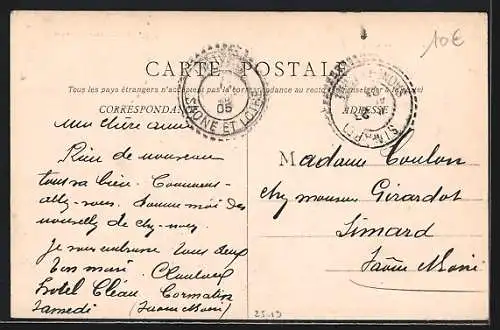 10€
CARTE POSTALE
Tous les pays étrangers n'acceptent pas la correspondance
CORRESPONDANCE
ADRESSE
05
SAONE ET LOIRE
Ma chère amie
Rien de nouveau
tout va bien. Comment
allez-vous. Donne moi des
nouvelles de chez-nous
Je vous embrasse tous deux
Ton mari
Hotel
Cormatin
Samedi (Saône
Madame Coulon
chez monsieur Girardot
Simard
Saône
25-19